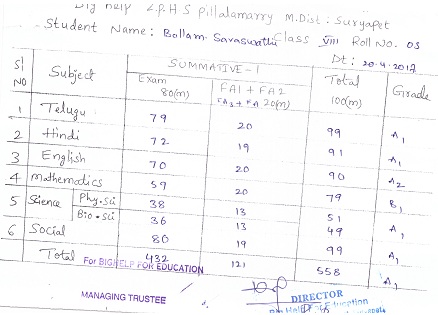 Big help Z.P.H.S Pillalamarry M.Dist: Suryapet
Student Name: Bollam. Saraswathi Class VIII Roll No. 03
Dt: 20-4-2017
Sl NO Subject SUMMATIVE-1 Total 100(m) Grade
Exam 80(m) FA1+FA2 FA3+FA 20(m)
1 Telugu 79 20 99 A1
2 Hindi 72 19 91 A1
3 English 70 20 90 A2
4 mathematics 59 20 79 B1
5 Science Phy.Sci 38 13 51
Bio.Sci 36 13 49 A1
6 Social 80 19 99 A1
Total 432 121 558 A1
For BIGHELP FOR EDUCATION
MANAGING TRUSTEE
DIRECTOR
Education